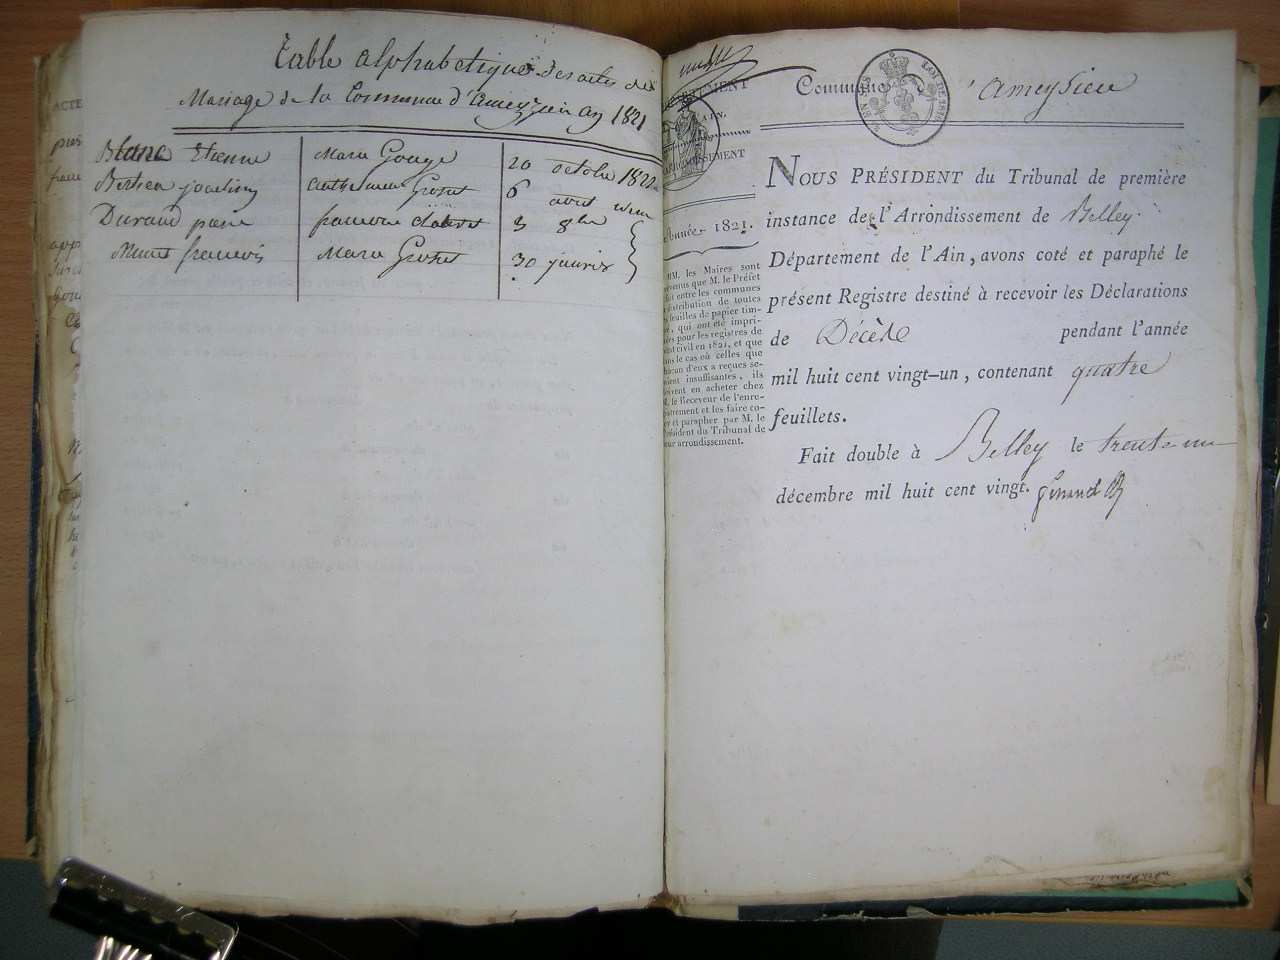 Table alphabetique des actes de
Mariage de la Commune d'Ameyzieu an 1821
Blanc Etienne Marie Gouge 20 octobre 1821
6 avril
Durand pierre françoise 3 8bre
françois Marie Grosset 30 janvier
Commune d'Ameysieu
Année 1821.
MM. les Maires sont
prévenus que M. le Préfet
fait entre les communes
distribution de toutes
feuilles de papier tim-
bré, qui ont été impri-
més pour les registres de
état civil en 1821, et que
dans le cas où celles que
chacun d'eux a reçues se-
raient insuffisantes, ils
doivent en acheter chez
M. le Receveur de l'enre-
gistrement et les faire co-
ter et parapher par M. le
Président du Tribunal de
leur arrondissement.
NOUS PRÉSIDENT du Tribunal de première
instance de l'Arrondissement de Belley.
Département de l'Ain, avons coté et paraphé le
présent Registre destiné à recevoir les Déclarations
de Décède pendant l'année
mil huit cent vingt-un, contenant quatre
feuillets.
Fait double à Belley le trente un
décembre mil huit cent vingt.